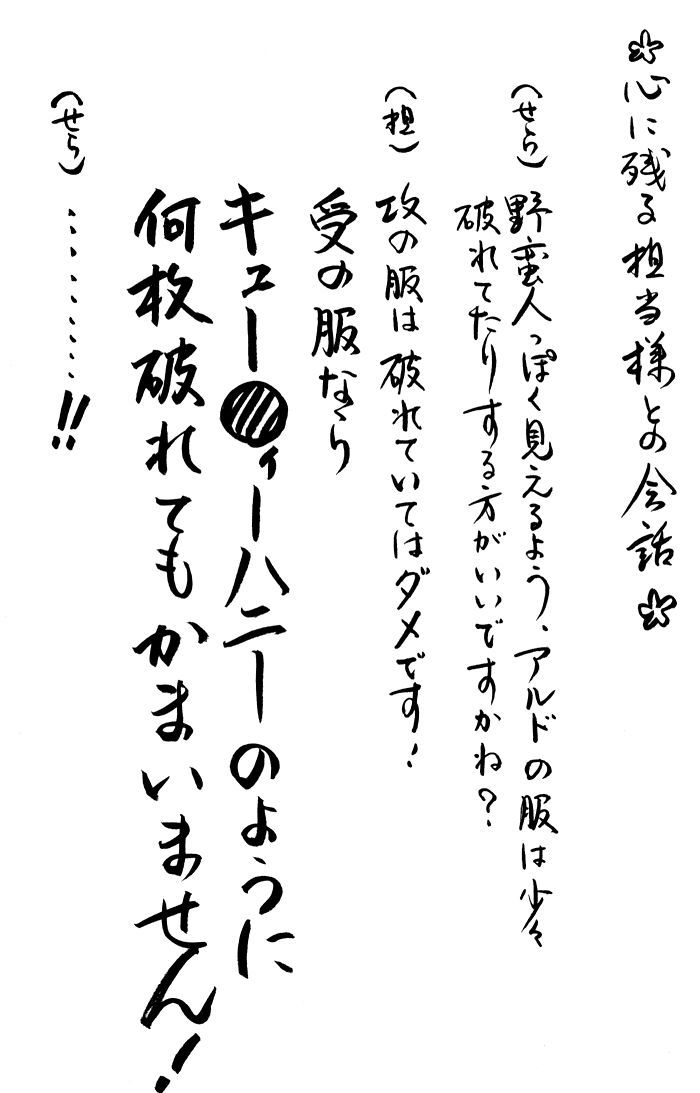 ✿心に残る担当様との会話✿
（せら）野蛮人っぽく見えるよう、アルドの服は少々
破れてたりする方がいいですかね？
（担）攻の服は破れていてはダメです！
受の服なら
キュー●ィーハニーのように
何枚破れてもかまいません！
（せら）………!!